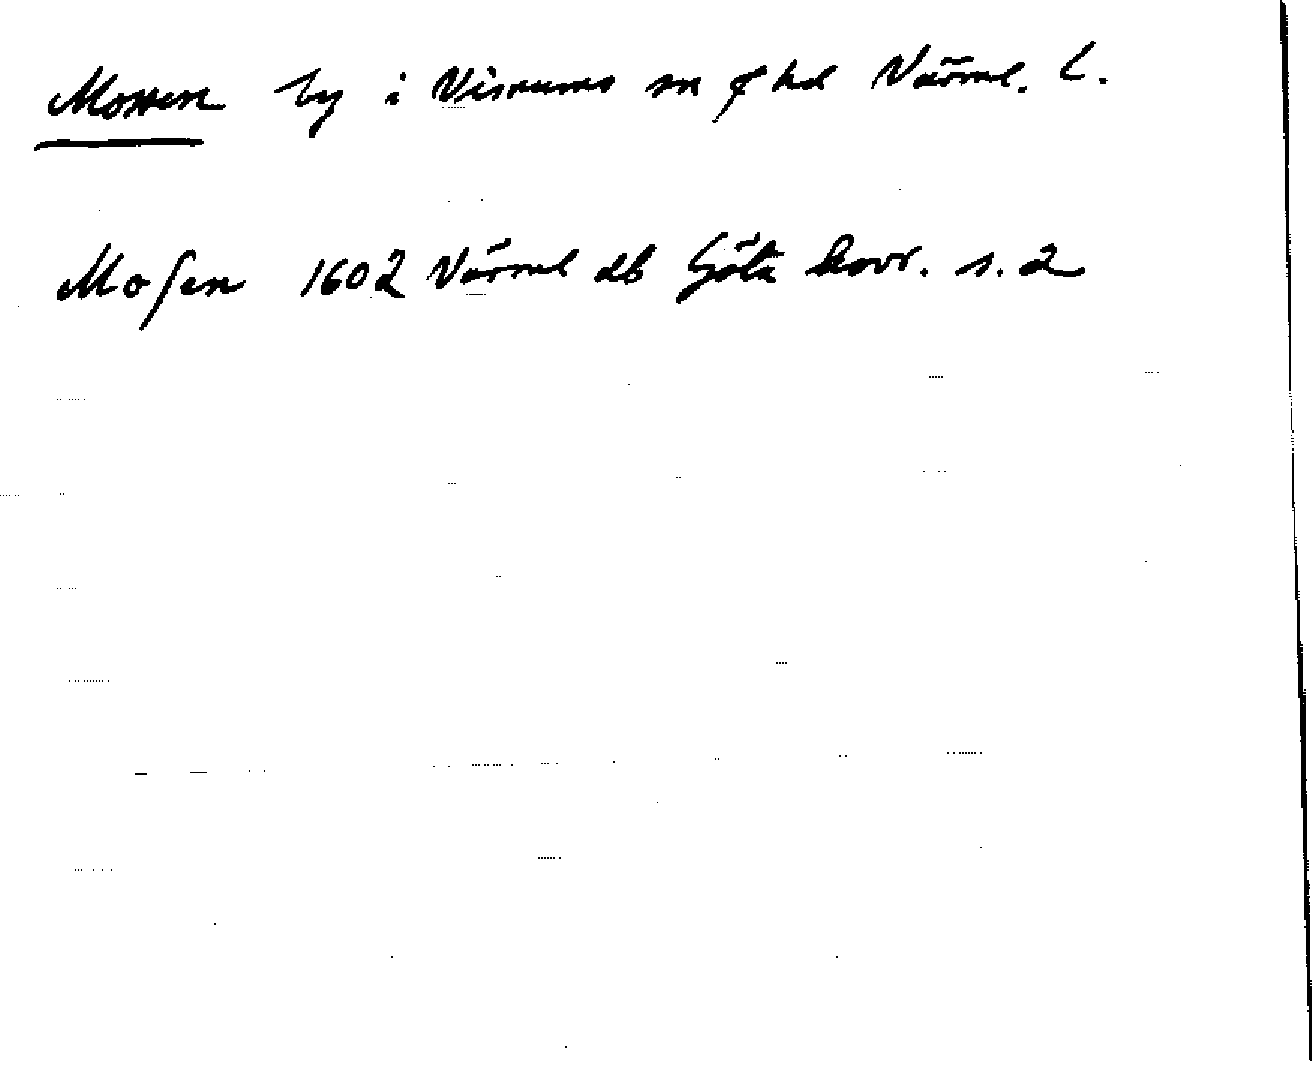 Mossen by i Visnums sn o hd Värml. l.
Moſen 1602 Värml db Göta hovr. s. 2